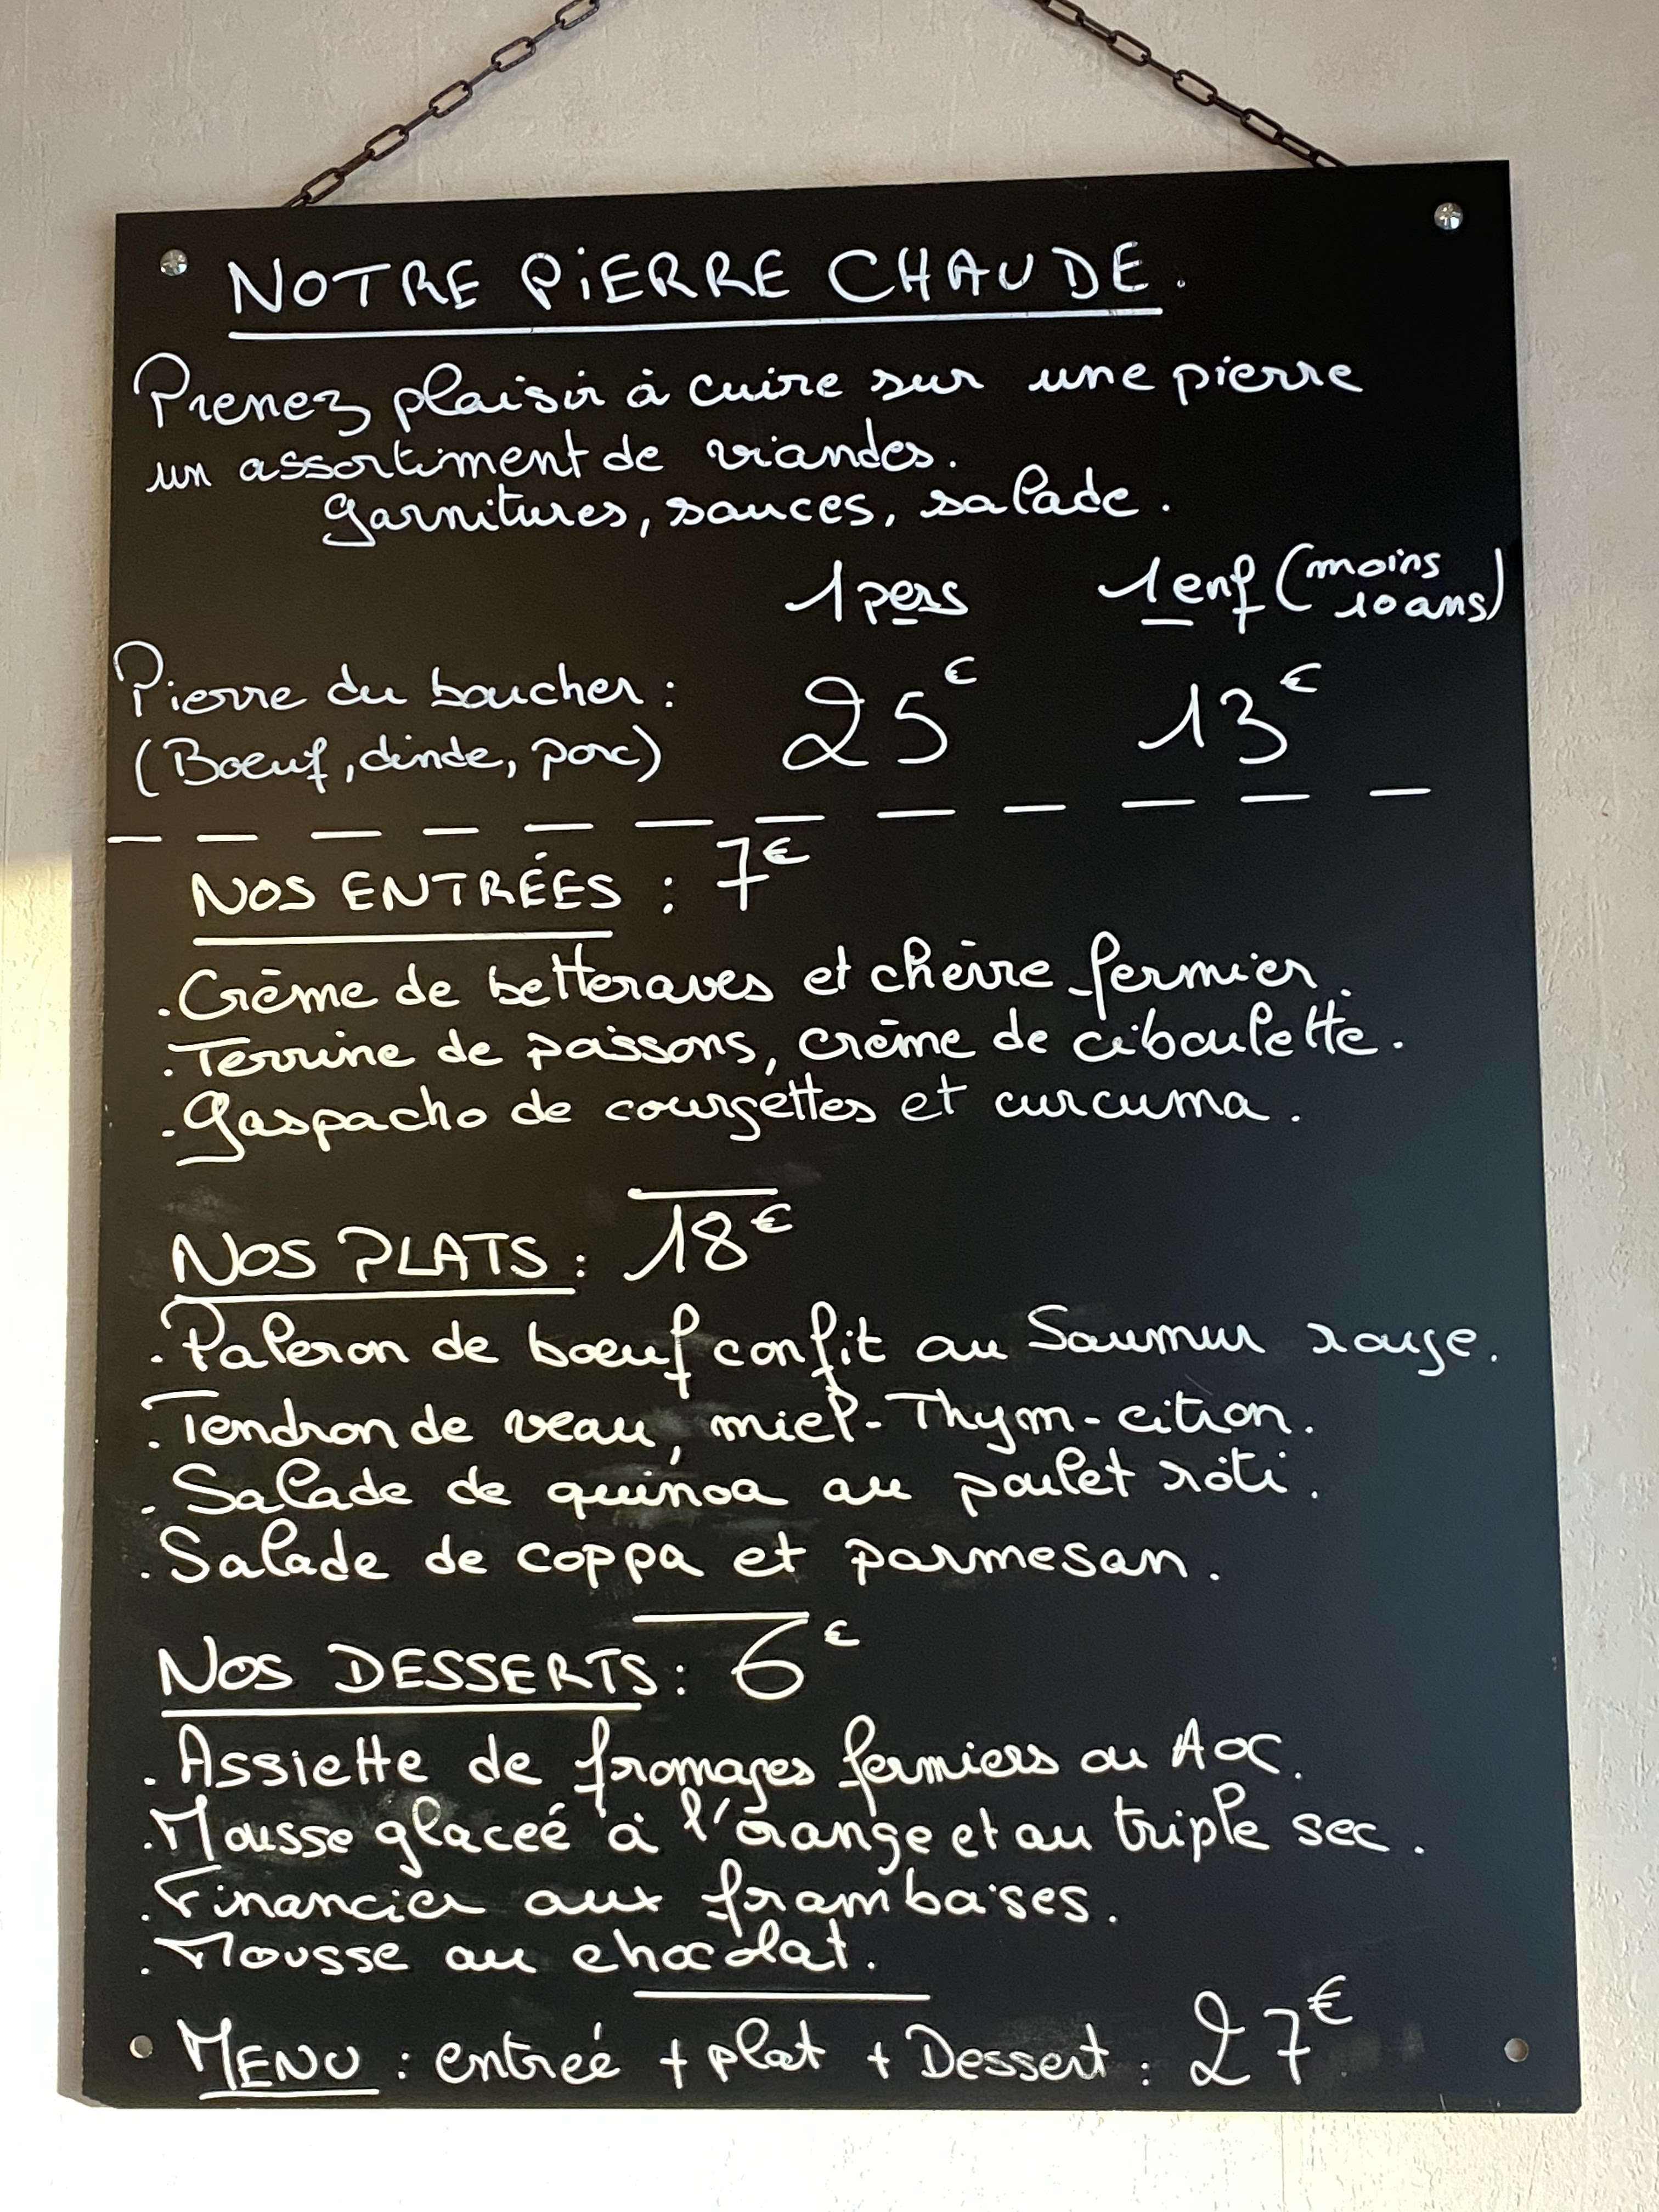 NOTRE PiERRE CHAUDE.
Prenez plaisir à cuire sur une pierre
un assortiment de viandes.
Garnitures, sauces, salade.
1 pers 1 enf (moins
10 ans)
Pierre du boucher : 25€ 13€
(Boeuf, dinde, porc)
NOS ENTRÉES : 7€
. Crème de betteraves et chèvre fermier.
. Terrine de poissons, crème de ciboulette.
. Gaspacho de courgettes et curcuma.
NOS PLATS : 18€
. Paleron de boeuf confit au Saumur rouge.
. Tendron de veau, miel-Thym-citron.
. Salade de quinoa au poulet rôti.
. Salade de coppa et parmesan.
NOS DESSERTS : 6€
. Assiette de fromages fermiers ou AOC.
. Mousse glaceé à l'orange et au triple sec.
. Financier aux framboises.
. Mousse au chocolat.
MENU : entreé + plat + Dessert : 27€